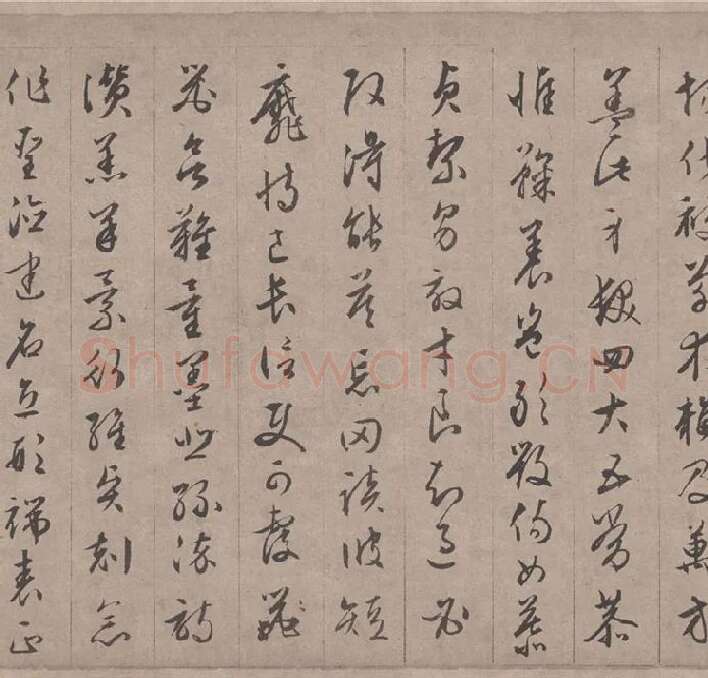 場化被草木賴及萬方
蓋此身髮四大五常恭
惟鞠養豈敢毀傷女慕
貞絜男效才良知過必
改得能莫忘罔談彼短
靡恃己長信使可覆
器欲難量墨悲絲染詩
讚羔羊景行維賢剋念
作聖德建名立形端表正
Shufawang.CN